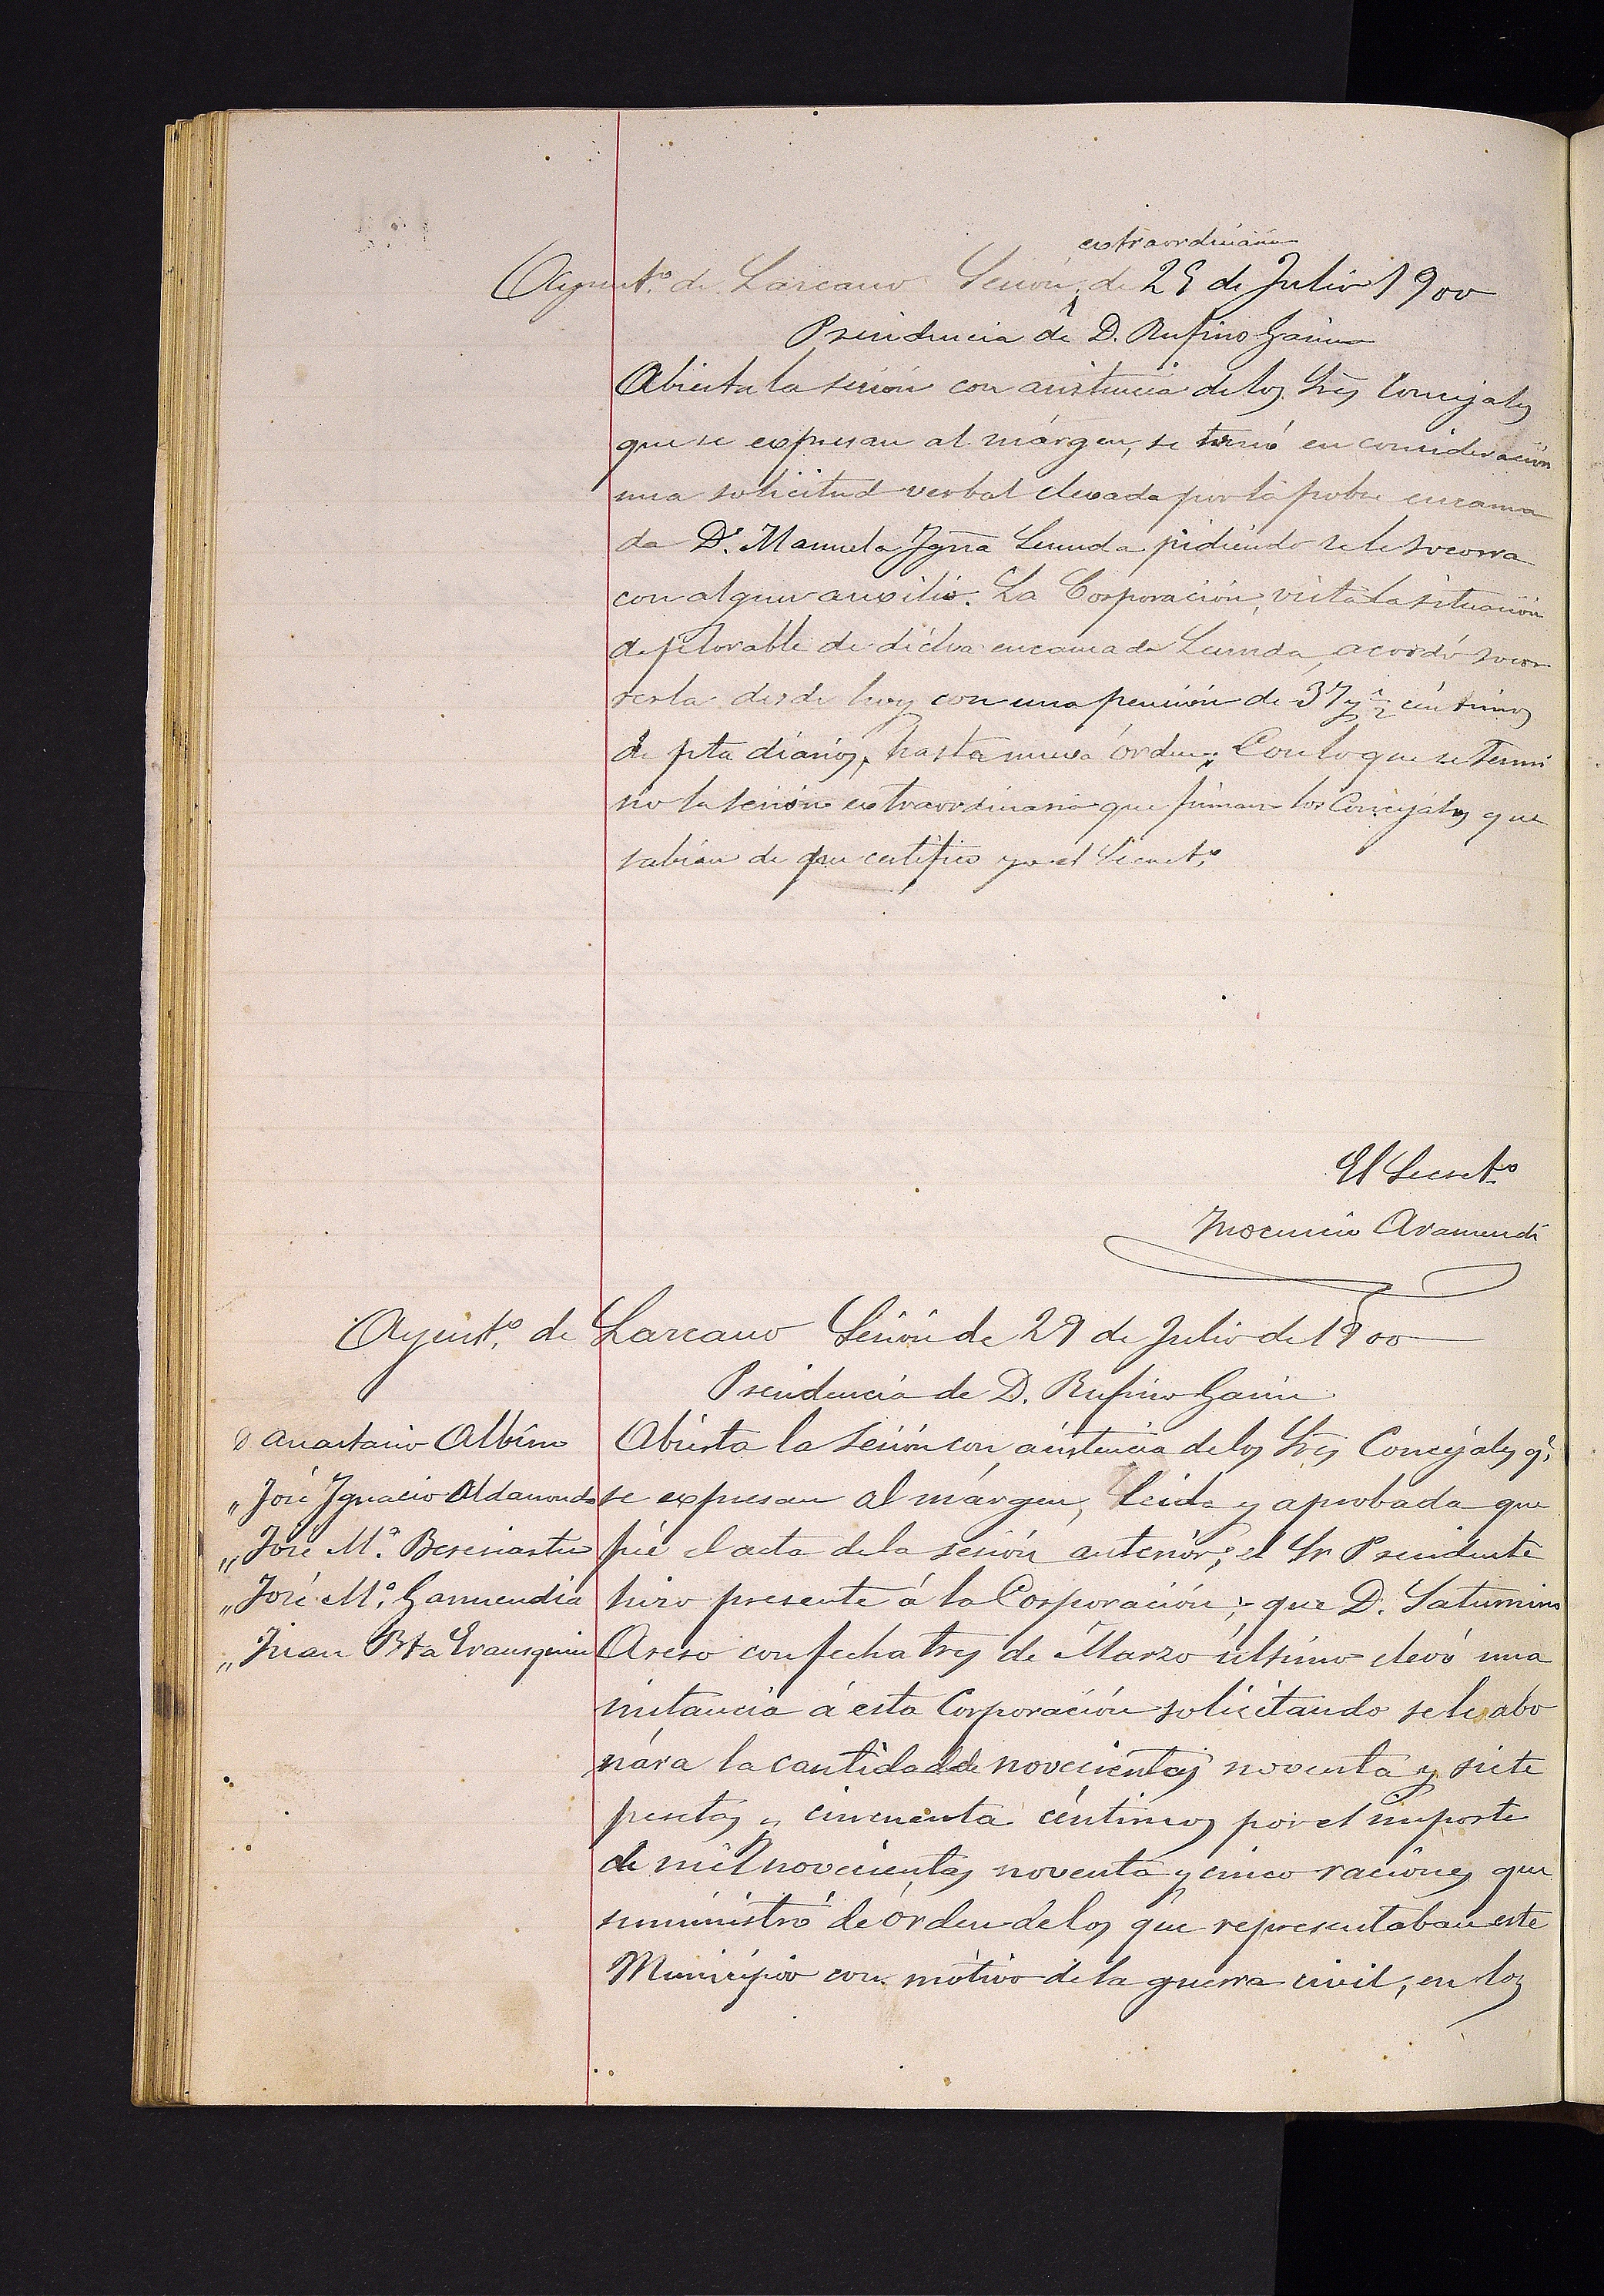 extraordinaria
Ayunt.º de Lazcano Sesión de 25 de Julio 1900
Presidencia de D. Rufino Garin
Abierta la sesión con asistencia de los Sres Concejales
que se expresan al márgen, se tomó en consideración
una solicitud verbal elevada por la pobre encama
da Dª. Manuela Ygnª pidiendo se le socorra
con algun auxilio. La Corporación, vista la situación
deplorable de dicha encamada acordó socor
rerla desde hoy con una pensión de 37 y ½ céntimos
de pta diarios, hasta nueva órden. Con lo que se termi
nó la sesión extraordinaria que firman los Concejales que
sabian de que certifico yo el Secret.º
El Secret.º
Inocencio Aramendi
Ayunt.º de Lazcano Sesión de 29 de Julio de 1900
Presidencia de D. Rufino Garin
D Anastasio Albisu
„ José Ygnacio Aldanondo
„ José Mª. Beresiartu
„ José Mª. Garmendia
„ Juan Bta Erausquin
Abierta la sesión con asistencia de los Sres Concejales q.
se expresan al márgen, leida y aprobada que
fué el acta de la sesión anterior; el Sr Presidente
hizo presente á la Corporación, que D. Saturnino
Areso con fecha tres de Marzo último elevó una
instancia á esta Corporación solicitando se le abo
nára la cantidad de novecientas noventa y siete
pesetas y cincuenta céntimos por el importe
de mil novecientas noventa y cinco raciones que
suministró de órden de los que representaban este
Municipio con mótivo de la guerra civil, en los